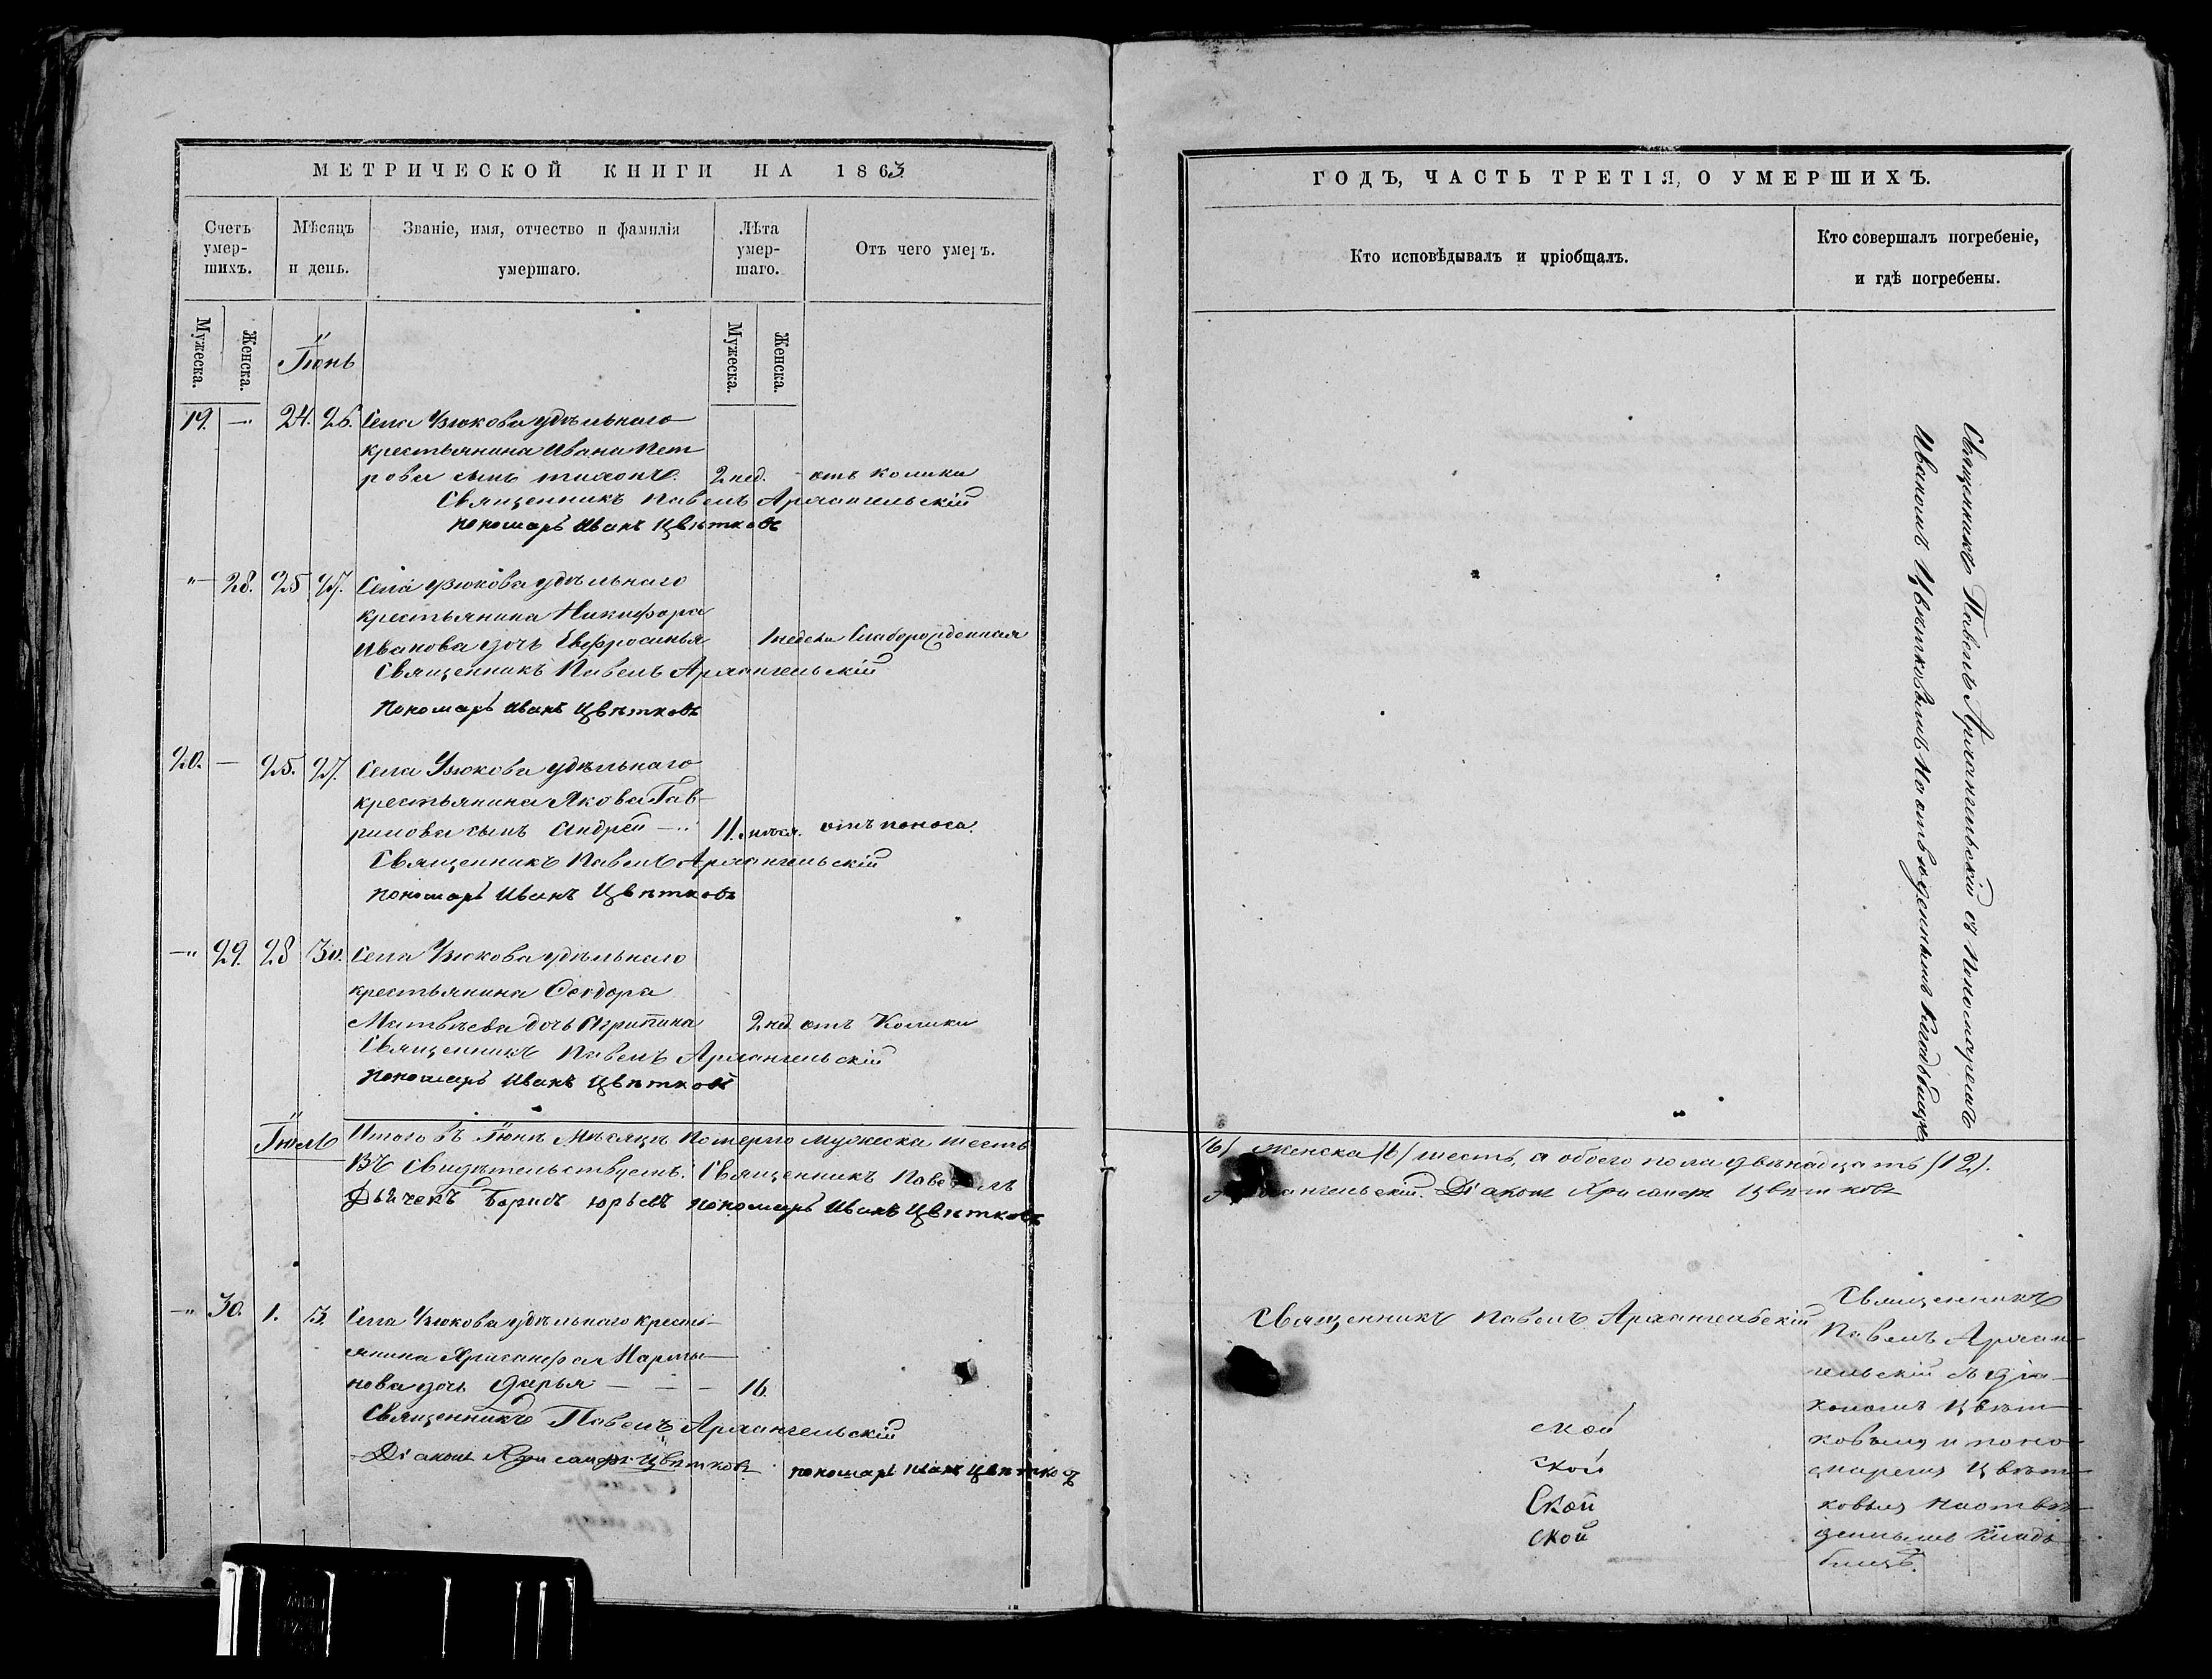 МЕТРИЧЕСКОЙ КНИГИ НА 1863
Счетъ умер-шихъ.
Мѣсяцъ и день.
Званіе, имя, отчество и фамилія умершаго.
Лѣта умер-шаго.
Отъ чего умеръ.
Мужеска.
Женска.
Мужеска.
Женска.
Іюнь
19. — 24. 26. Села Узюкова удѣльнаго
крестьянина Ивана Пет
рова сынъ Тихонъ. 2 нед. отъ колики
Священникъ Павелъ Архангельскій
пономарь Иванъ Цвѣтковъ
" 28. 25 27. Села Узюкова удѣльнаго
крестьянина Никифора
Иванова дочь Евфросинья 1 недели Слаборожденная
Священникъ Павелъ Архангельскій
Пономарь Иванъ Цвѣтковъ
20. — 25. 27. Села Узюкова удѣльнаго
крестьянина Якова Гав-
рилова сынъ Андрей — 11. мѣся. отъ поноса.
Священникъ Павелъ Архангельскій
пономарь Иванъ Цвѣтковъ
—" 29. 28 30. Села Узюкова удѣльнаго
крестьянина Ѳеодора
Матвѣева дочь Агрипина 2 нед. отъ Колики
Священникъ Павелъ Архангельскій
пономарь Иванъ Цвѣтковъ
Іюль
Итого въ Іюнѣ Мѣсяцѣ Померло мужеска шесть
Въ Свидѣтельствуемъ: Священникъ Павелъ
Борисъ Юрьевъ пономарь Иванъ Цвѣтковъ
—" 30. 1. 3. Села Узюкова удѣльнаго кресть-
янина Хрисанфа Марты-
нова дочь Дарья — — — 16.
Священникъ Павелъ Архангельскій
Діаконъ Хрисанфъ Цвѣтковъ пономарь Иванъ Цвѣтковъ
ГОДЪ, ЧАСТЬ ТРЕТІЯ, О УМЕРШИХЪ.
Кто исповѣдывалъ и пріобщалъ.
Кто совершалъ погребеніе,
и гдѣ погребены.
Священникъ Павелъ Архангельскій съ Пономаремъ
Иваномъ Цвѣтковымъ На отведенномъ Кладбищѣ
(6) Женска (6) шесть, а обоего пола двѣнадцать (12).
Архангельскій. Діаконъ Хрисанѳъ Цвѣтковъ
Священникъ Павелъ Архангельскій
ской
ской
Ской
ской
Священникъ
Павелъ Архан-
гельскій съ діа-
кономъ Цвѣт-
ковымъ и поно-
маремъ Цвѣт-
ковымъ На отве-
денномъ Клад-
бищѣ.